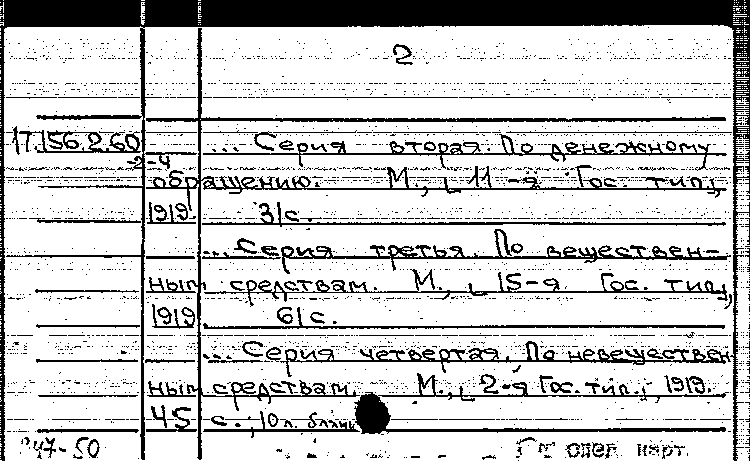 2
17.156.2.60 ... Серия вторая. По денежному
-2-4
обращению. М., [11-я Гос. тип.],
1919. 31с.
... Серия третья. По веществен-
ным средствам. М., [15-я Гос. тип.],
1919. 61с.
... Серия четвертая. По невеществен
ным средствам. М., [2-я Гос. тип.], 1919.
45 с.; 10 л. бланк
347-50